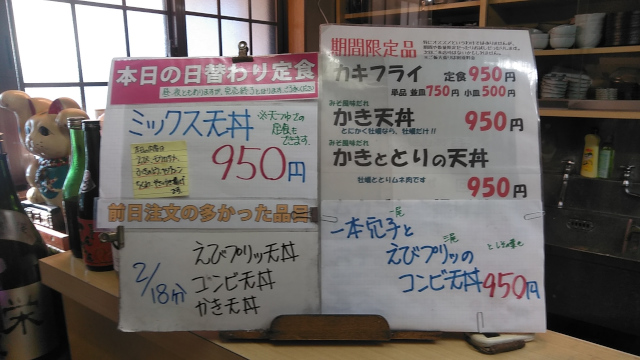 本日の日替わり定食
ミックス天丼
※天つゆでの
定食も
できます。
950円
前日注文の多かった品
2/18分
えびプリッ天丼
コンビ天丼
かき天丼
期間限定品
カキフライ 定食950円
単品 並皿750円 小皿500円
みそ風味だれ
かき天丼 950円
とにかく牡蠣なら、牡蠣だけ!!
みそ風味だれ
かきととりの天丼
牡蠣ととりムネ肉です
950円
一本穴子と
えびプリッの
コンビ天丼950円
栄